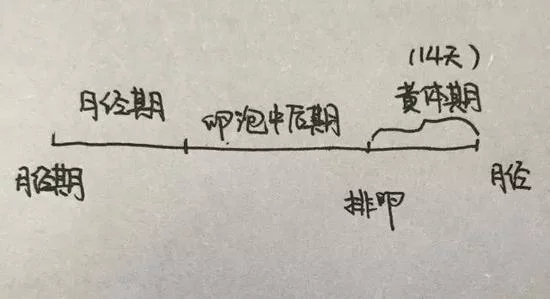 (14天)
月经期
卵泡中后期
黄体期
月经期
排卵
月经